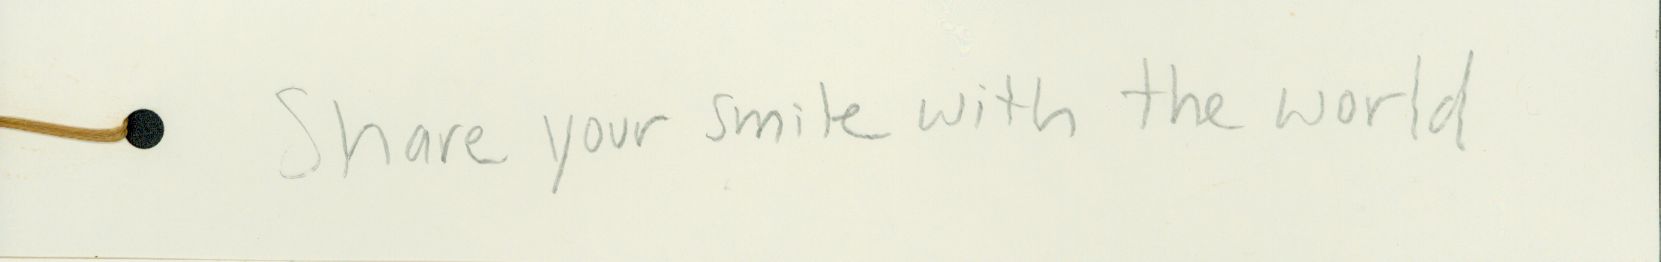 Share your smile with the world